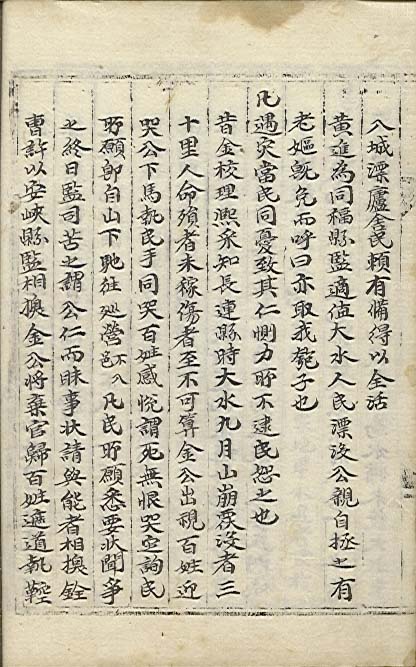 入城漂廬舍民賴有備得以全活
黃進為同福縣監適值大水人民漂沒公親自拯之有
老嫗既免而呼曰亦取我瓠子也
凡遇灾當民同憂致其仁惻力所不逮民恕之也
昔金校理熙采知長連縣時大水九月山崩覆沒者三
十里人命殞者禾稼傷者至不可算金公出視百姓迎
哭公下馬執民手同哭百姓感悅謂死無恨哭定詢民
所願卽自山下馳往巡營不入邑凡民所願悉要狀聞爭
之終日監司苦之謂公仁而昧事狀請與能者相換銓
曹許以安峽縣監相換金公將棄官歸百姓遮道執鞚